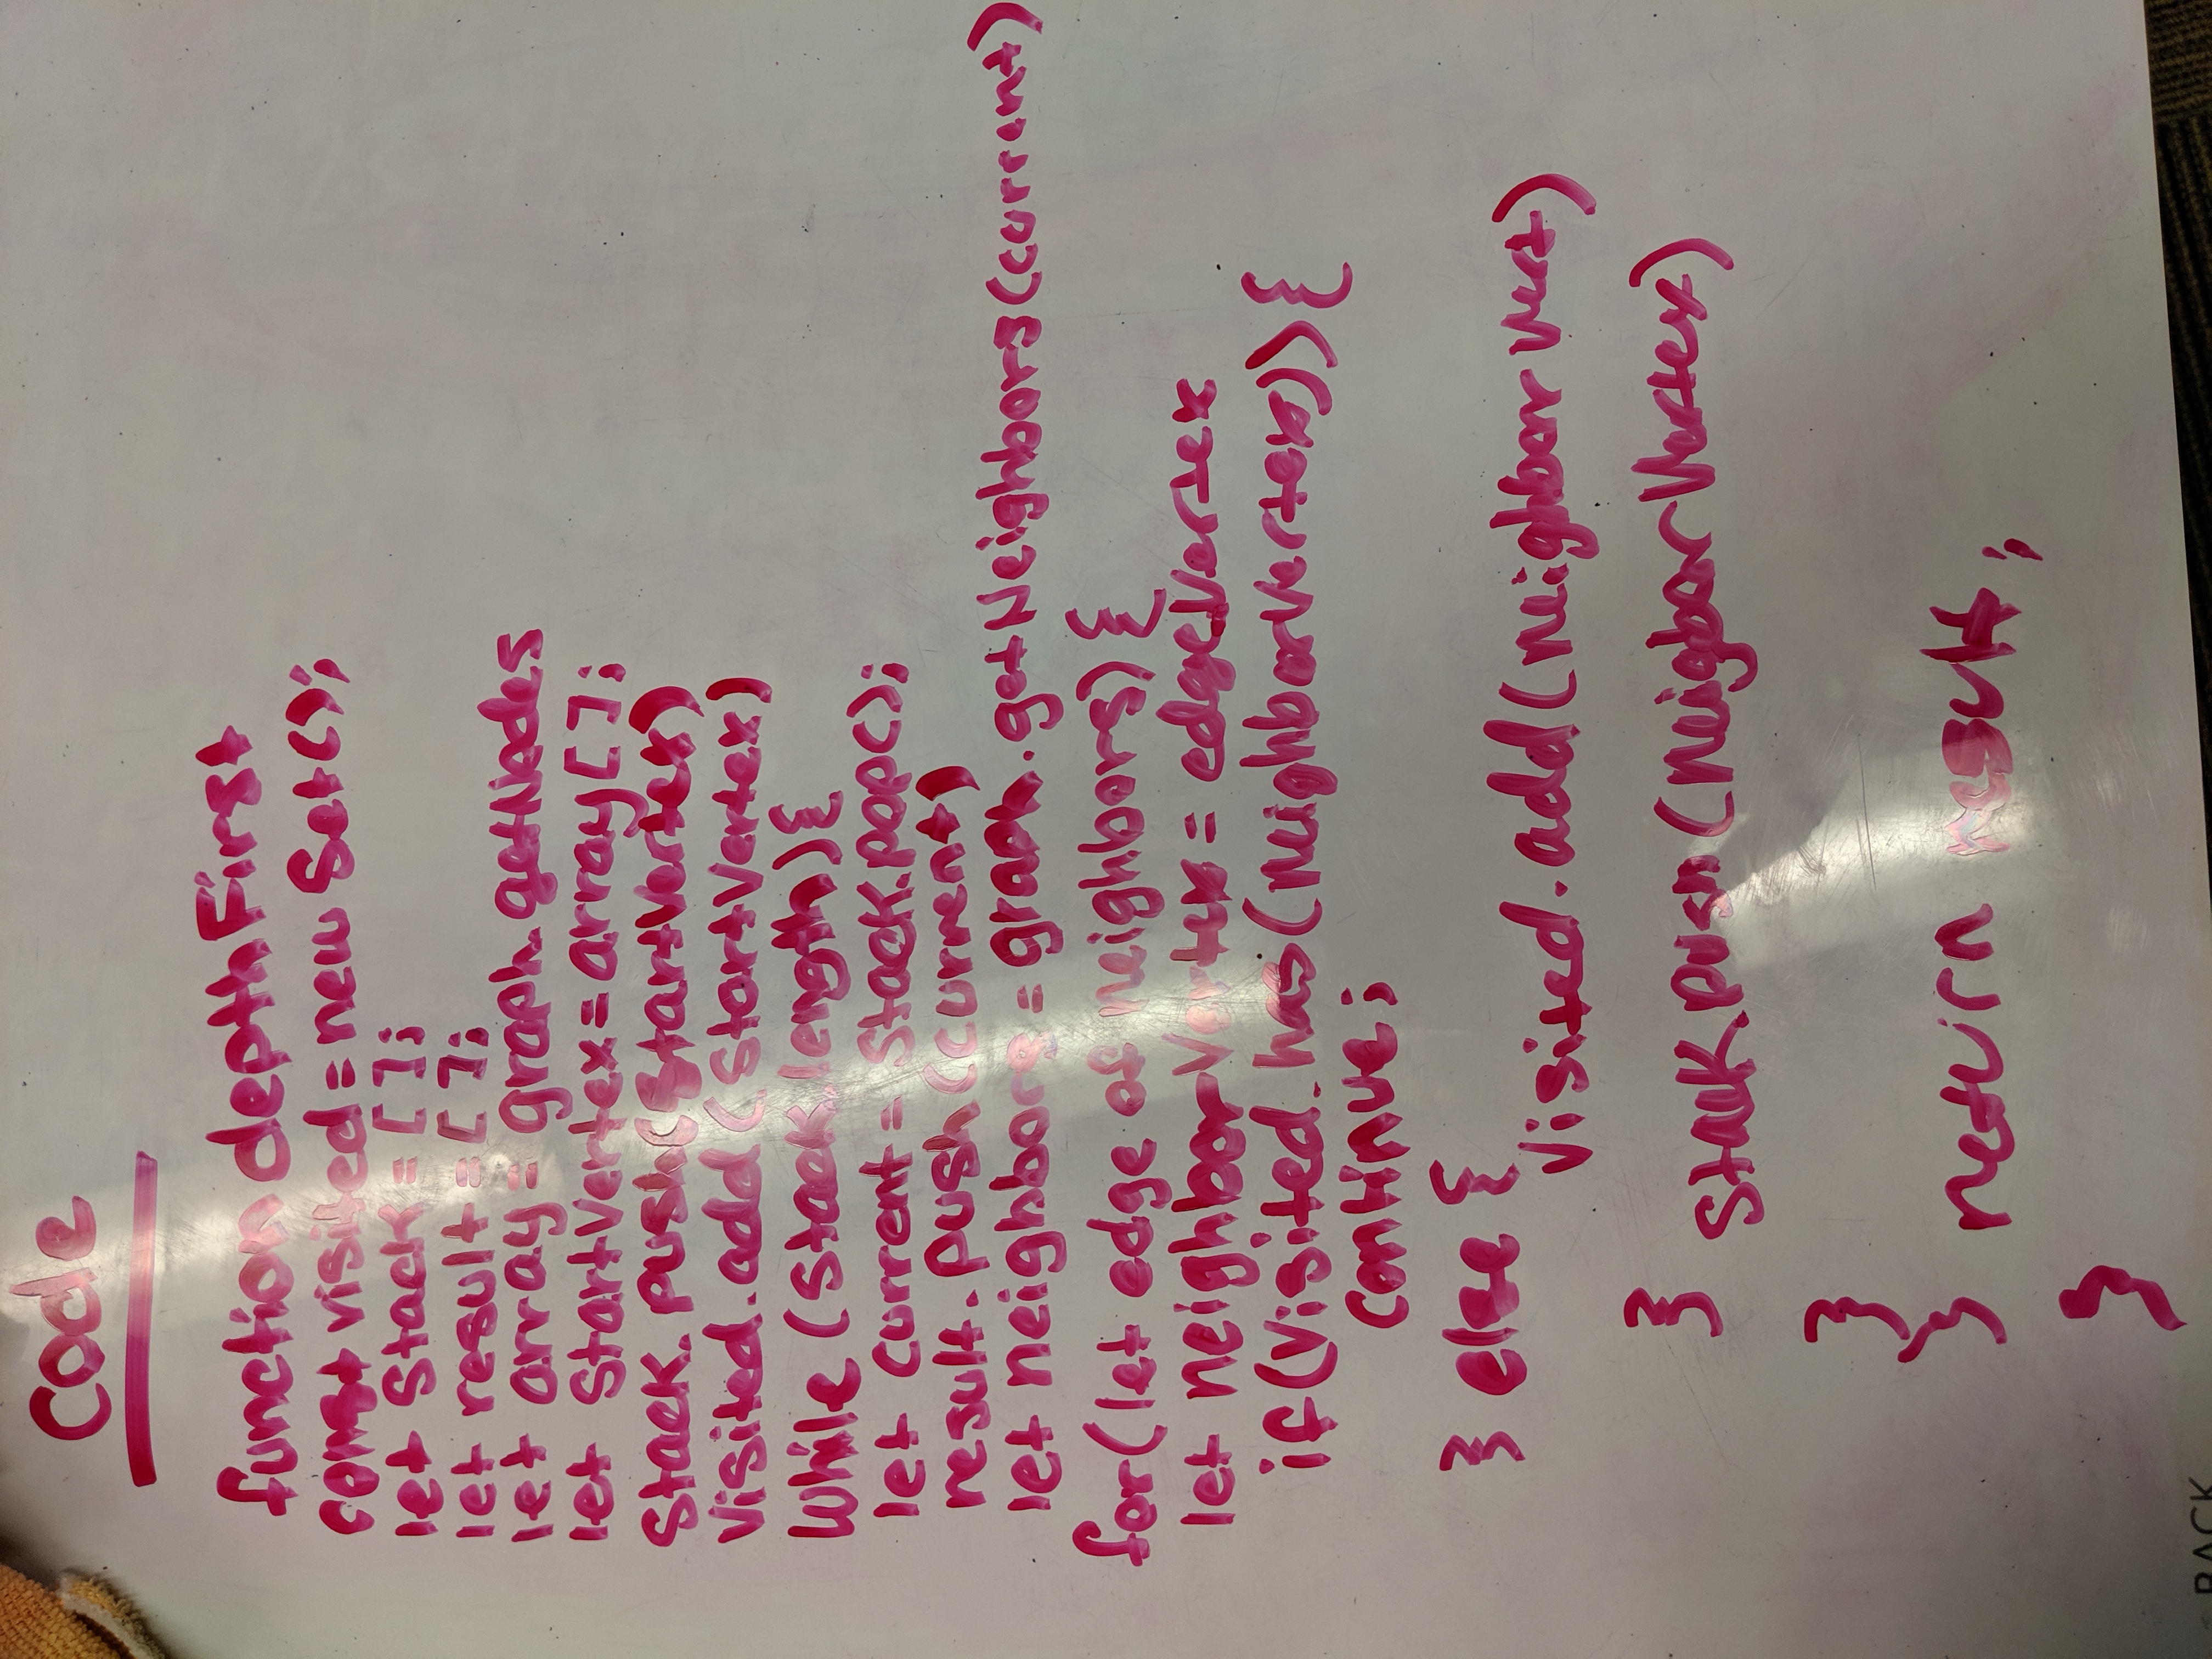 Code
function depthFirst
const visited = new Set();
let Stack = [ ];
let result = [ ];
let array = graph.getNodes
let StartVertex = array[ ];
Stack.push(StartVertex)
Visited.add(StartVertex)
While (Stack.length){
let current = Stack.pop();
result.push(current)
let neighbors = graph.getNeighbors(current)
for(let edge of neighbors){
let neighborVertex = edge.Vertex
if(Visited.has(neighborVertex)){
continue;
} else {
Visited.add(neighbor Vert)
} Stack.push(neigborVertex)
}
} return result;
}
BACK